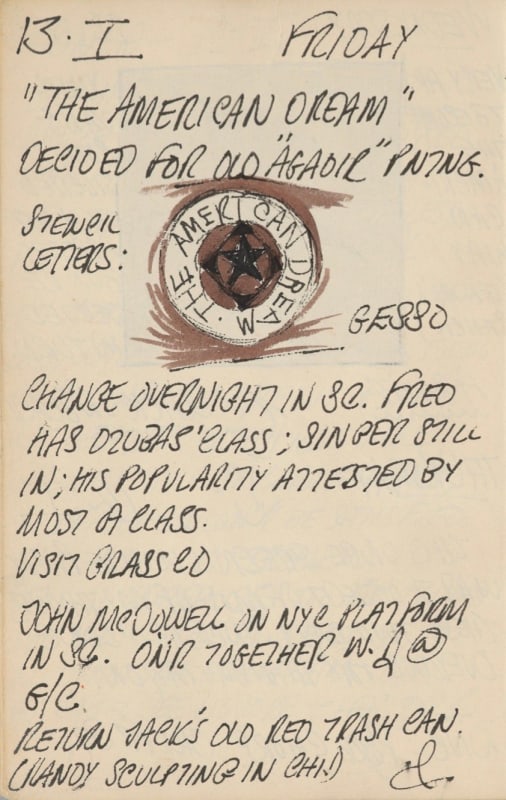 13. I FRIDAY
"THE AMERICAN DREAM"
DECIDED FOR OLD "AGADIR" PNTNG.
STENCIL
LETTERS:
THE AMERICAN DREAM.
GESSO
CHANGE OVERNIGHT IN SC. FRED
HAS DZUBAS' CLASS; SINGER STILL
IN; HIS POPULARITY ATTESTED BY
MOST OF CLASS.
VISIT BRASS CO
JOHN McDOWELL ON NYC PLATFORM
IN SC. TOGETHER W. @
G/C.
RETURN JACK'S OLD RED TRASH CAN.
(RANDY SCULPTING IN CHI!)